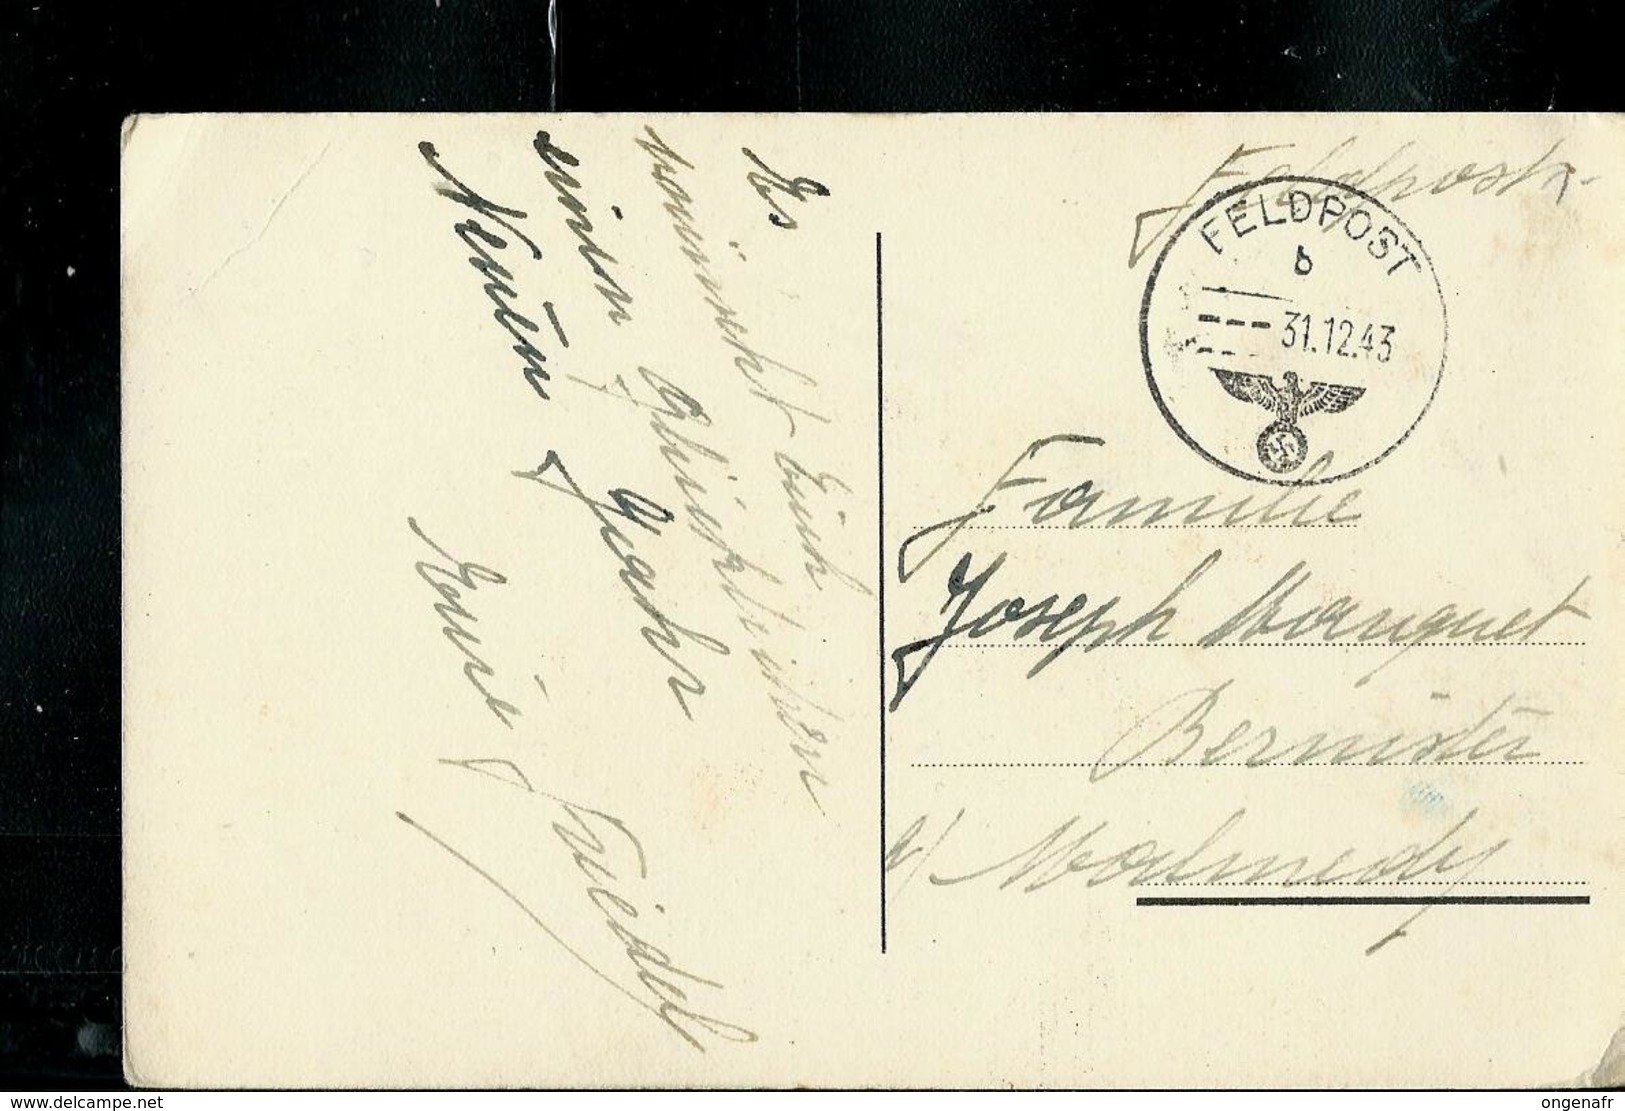 Es
wünscht Euch
einen glücklichen
Neuen Jahr
Euer Friedel
Feldpost
FELDPOST
b
31.12.43
Familie
Joseph Marquet
Bernister
b/ Malmedy
www.delcampe.net
ongenafr